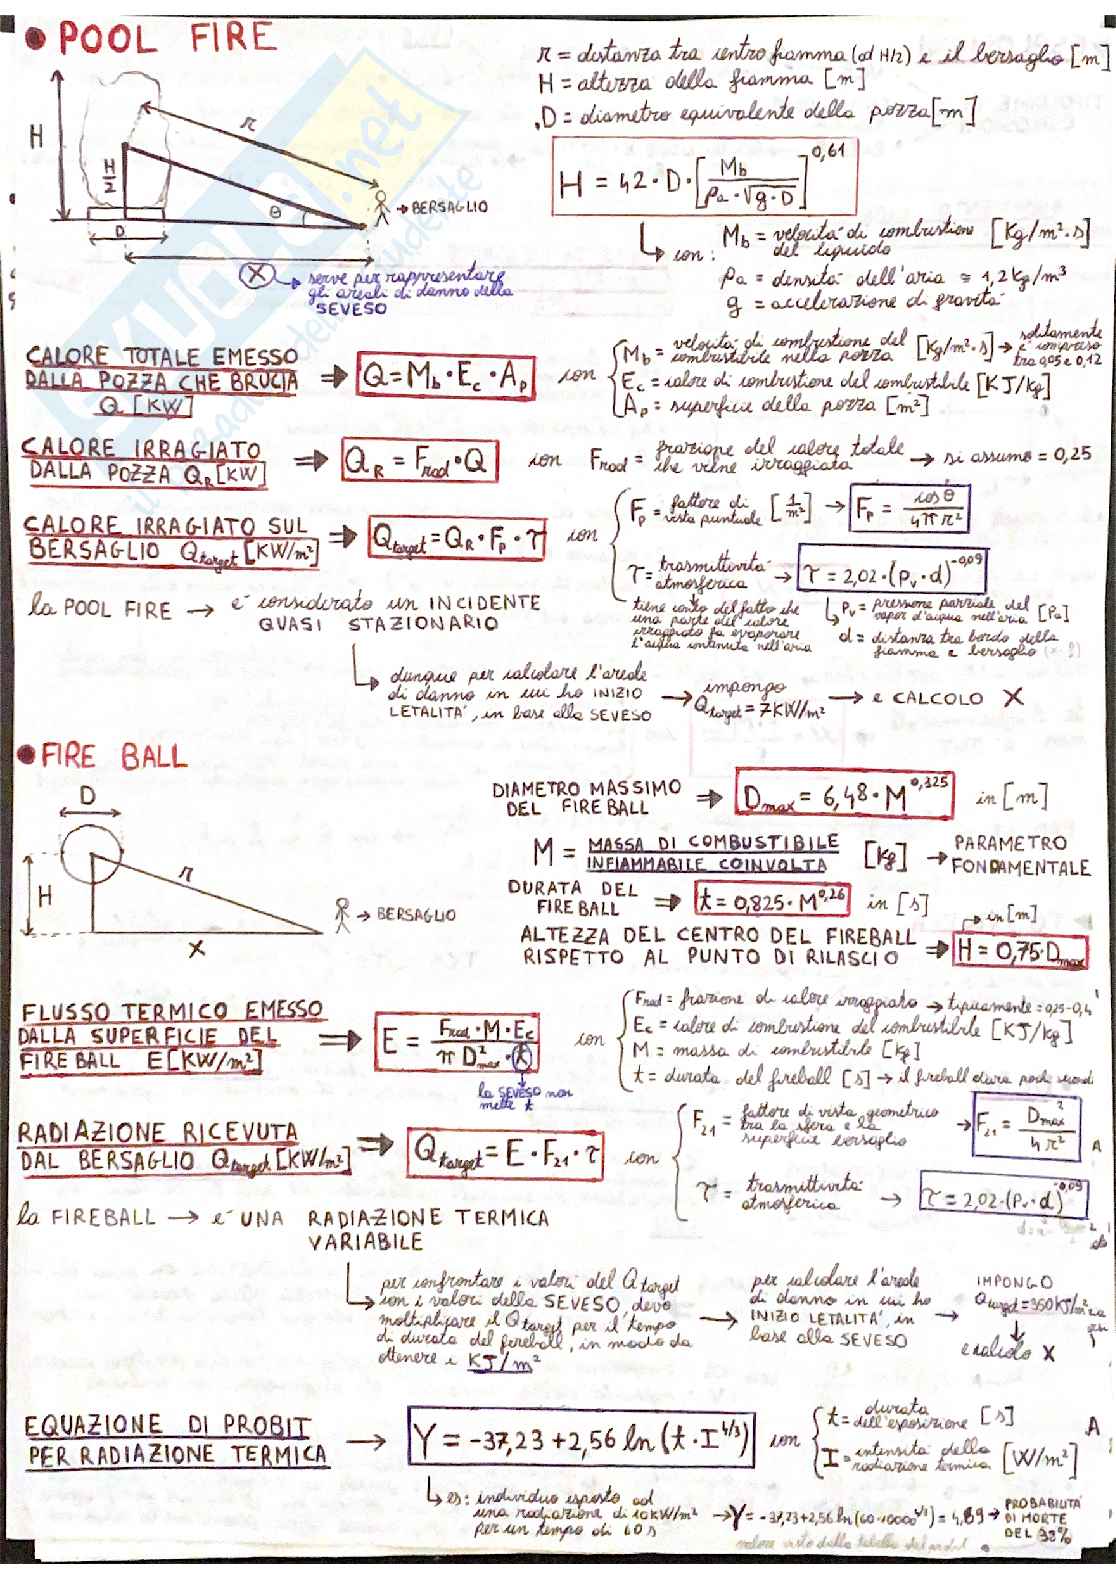 • POOL FIRE
r = distanza tra centro fiamma (ad H/2) e il bersaglio [m]
H = altezza della fiamma [m]
D = diametro equivalente della pozza [m]
H
H/2
r
θ
→ BERSAGLIO
D
X → serve per rappresentare
gli areali di danno della
SEVESO
H = 42 · D · [Mb / (ρa · √g·D)]^0,61
con: Mb = velocità di combustione [Kg/m²·s]
del liquido
ρa = densità dell'aria ≅ 1,2 kg/m³
g = accelerazione di gravità
CALORE TOTALE EMESSO
DALLA POZZA CHE BRUCIA
Q [KW]
⇒ Q = Mb · Ec · Ap con
Mb = velocità di combustione del [Kg/m²·s] → solitamente
combustibile nella pozza è compreso
tra 0,05 e 0,12
Ec = calore di combustione del combustibile [KJ/kg]
Ap = superficie della pozza [m²]
CALORE IRRAGIATO
DALLA POZZA QR [KW]
⇒ QR = Frad · Q con Frad = frazione del calore totale → si assume = 0,25
che viene irraggiata
CALORE IRRAGIATO SUL
BERSAGLIO Qtarget [KW/m²]
⇒ Qtarget = QR · Fp · τ con
Fp = fattore di [1/m²] → Fp = cos θ / 4π r²
vista puntuale
τ = trasmittività → τ = 2,02 · (Pv · d)^-0,09
atmosferica
tiene conto del fatto che
una parte del calore
irraggiato fa evaporare
l'acqua contenuta nell'aria
Pv = pressione parziale del [Pa]
vapor d'acqua nell'aria
d = distanza tra bordo della
fiamma e bersaglio
la POOL FIRE → e' considerato un INCIDENTE
QUASI STAZIONARIO
dunque per calcolare l'areale
di danno in cui ho INIZIO
LETALITA', in base alla SEVESO
→ impongo
Qtarget = 7KW/m²
→ e CALCOLO X
• FIRE BALL
D
H
r
X
→ BERSAGLIO
DIAMETRO MASSIMO
DEL FIREBALL
⇒ Dmax = 6,48 · M^0,325 in [m]
M = MASSA DI COMBUSTIBILE [Kg] → PARAMETRO
INFIAMMABILE COINVOLTA FONDAMENTALE
DURATA DEL
FIREBALL
⇒ t = 0,825 · M^0,26 in [s]
→ in [m]
ALTEZZA DEL CENTRO DEL FIREBALL
RISPETTO AL PUNTO DI RILASCIO
⇒ H = 0,75 · Dmax
FLUSSO TERMICO EMESSO
DALLA SUPERFICIE DEL
FIREBALL E [KW/m²]
⇒ E = Frad · M · Ec / π D²max · t con
la SEVESO non
mette t
Frad = frazione di calore irraggiato → tipicamente = 0,25-0,4
Ec = calore di combustione del combustibile [KJ/kg]
M = massa di combustibile [Kg]
t = durata del fireball [s] → il fireball dura pochi secondi
RADIAZIONE RICEVUTA
DAL BERSAGLIO Qtarget [KW/m²]
⇒ Qtarget = E · F21 · τ con
F21 = fattore di vista geometrico
tra la sfera e la
superficie bersaglio
→ F21 = Dmax² / 4 r²
τ = trasmittività
atmosferica
→ τ = 2,02 · (Pv · d)^-0,09
la FIREBALL → e' UNA RADIAZIONE TERMICA
VARIABILE
per confrontare i valori del Qtarget
con i valori della SEVESO, devo
moltiplicare il Qtarget per il tempo
di durata del fireball, in modo da
ottenere i KJ/m²
→ per calcolare l'areale
di danno in cui ho
INIZIO LETALITA', in
base alla SEVESO
→ IMPONGO
Qtarget = 350KJ/m²
e calcolo X
EQUAZIONE DI PROBIT
PER RADIAZIONE TERMICA
→ Y = -37,23 + 2,56 ln (t · I^4/3) con
t = durata [s]
dell'esposizione
I = intensità della [W/m²]
radiazione termica
es: individuo esposto ad
una radiazione di 10kW/m²
per un tempo di 60 s
→ Y = -37,23+2,56 ln (60·10000^4/3) = 4,89 → PROBABILITA'
DI MORTE
DEL 38%